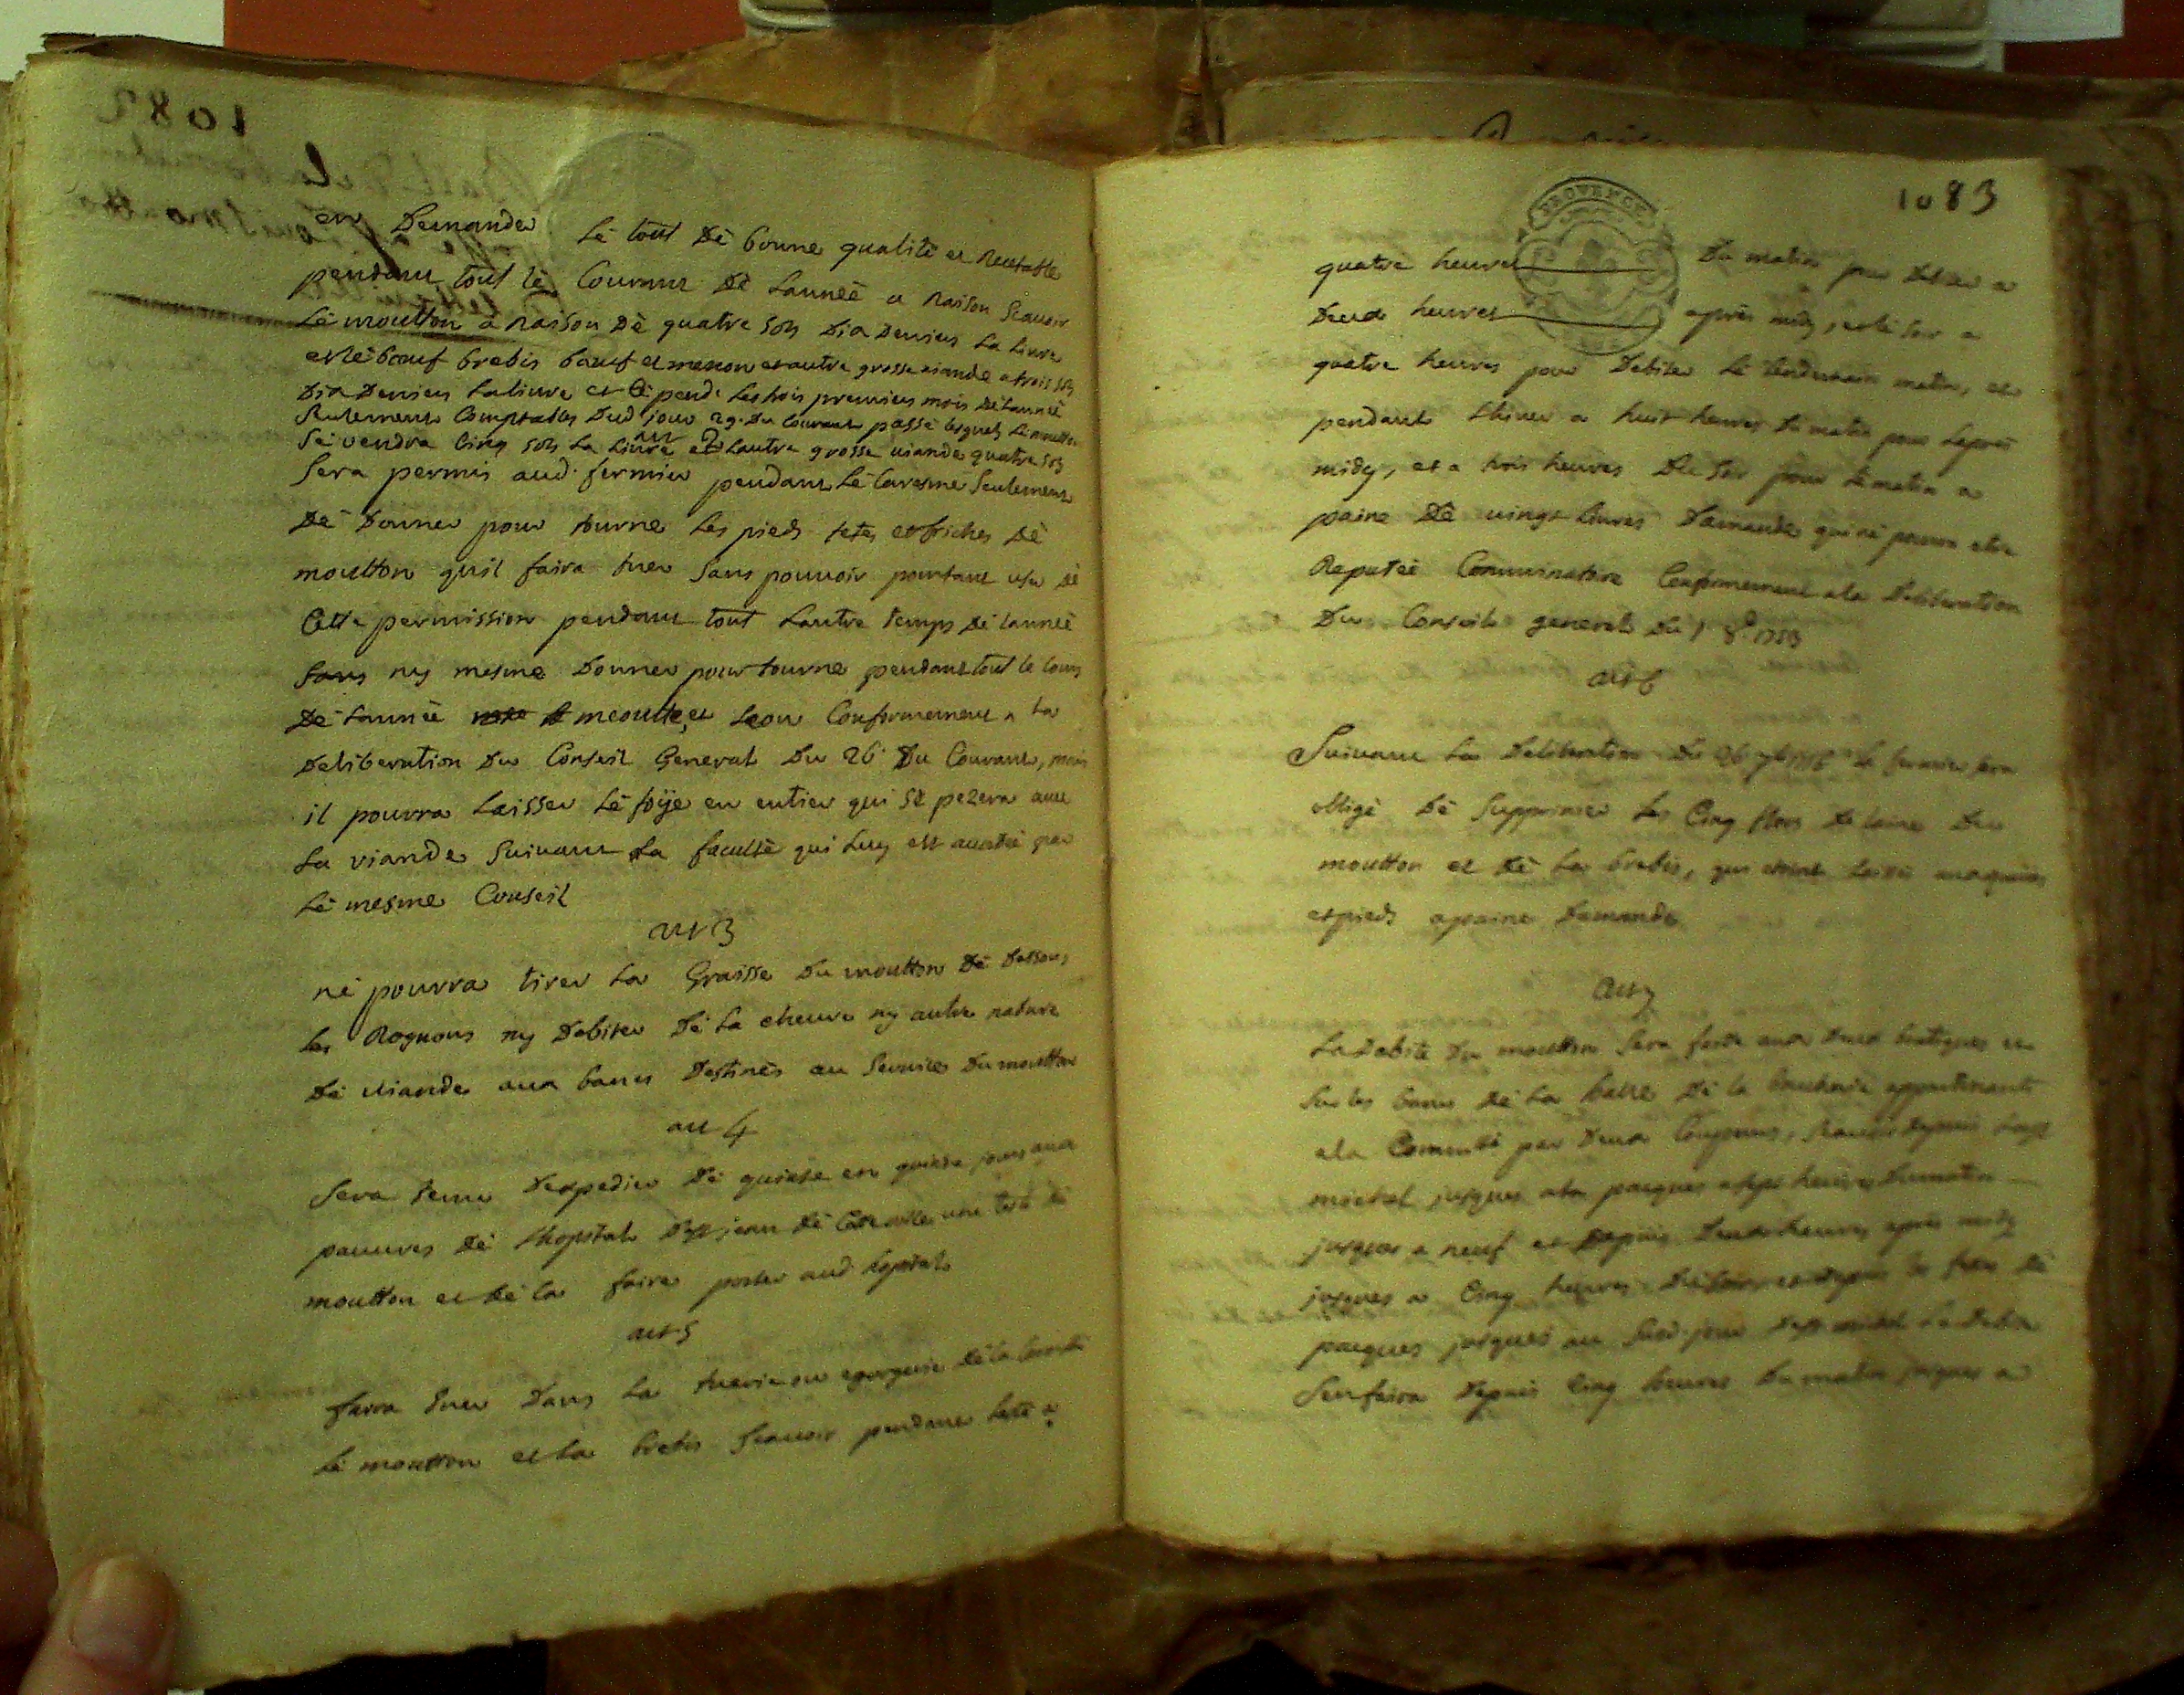 en Demander Lé tout Dé bonne qualité et Recetable
pendant tout lé Courant Dé Lannéé a Raison Scavoir
Lé moutton a Raison Dé quatre Sols Dix Deniers La Livre
et lé boeuf brebis et menon et autre grosse viande a trois Sols
Dix Deniers La livre et pend. Les trois premiers mois Dé Lannéé
Seulement Comptables Dud jour 29 Du Courant passé lesquels Lé moutton
Sé vendra Cinq Sols La Livre et Lautre grosse viande quatre Sols
Sera permis aud. fermier pendant Lé Caresme Seulement
Dé Donner pour tourne Les pieds tetes et friches Dé
moutton quil faira tuer Sans pouvoir pourtant user Dé
Cette permission pendant tout Lautre temps Dé Lannéé
ny mesme Donner pour tourne pendant tout le Cours
Dé Lannéé Conformement a La
Deliberation Du Conseil General Du 26 Du Courant, mais
il pourra Laisser Lé foije en entier qui Sé pezera avec
La viande Suivant La faculté qui Luy est par
Lé mesme Conseil
art 3
né pourra tirer La Graisse Du moutton Dé Dessous
Les Rognons ny Debiter Dé La cheuvre ny autre nature
Dé viande aux bancs Destinés au Service Du moutton
art 4
Sera tenu Dexpedier Dé quinze en quinze jours aux
pauvres Dé Lhopital St jean Dé une teste Dé
moutton et Dé la faire porter aud. hopital
art 5
faira tuer Dans La tuerie ou egorgerie Dé la
Lé moutton et La brebis Scavoir pendant Leté a
1083
PROVENCE
quatre heures Du matin pour Debiter a
Deux heures après midy, et lé Soir a
quatre heures pour Debiter Lé Lendemain matin, et
pendant Lhiver a huit heures Du matin pour Laprès
midy, et a trois heures Du Soir pour Lé matin a
paine Dé vingt Livres Damande qui né pourra etre
Reputéé Comminatoire Conformement a la Deliberation
Du Conseil general Du
art 6
Suivant La Deliberation Du 26 Le fermier Sera
obligé Dé Supprimer Les Cinq Dé Laine Du
moutton et Dé La brebis, qui
et pieds a paine Damande
art 7
La Debite Du moutton Sera faite aux Deux boutiques
Sur les bancs Dé La halle Dé la boucherie appartenant
a la Comunté par Deux Coupeurs, Scavoir Depuis
michel jusques a la pacques a Sept heures Du matin
jusques a neuf et Depuis Deux heures après midy
jusques a Cinq heures et Depuis les fetes Dé
pacques jusques au Susd. jour St michel La Debite
Sen faira Depuis Cinq heures Du matin jusques a